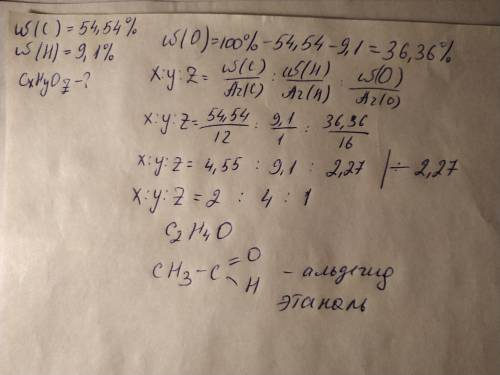 ω(C) = 54,54%
ω(H) = 9,1%
CxHyOz - ?
ω(O) = 100% - 54,54 - 9,1 = 36,36%
x:y:z = ω(C)/Ar(C) : ω(H)/Ar(H) : ω(O)/Ar(O)
x:y:z = 54,54/12 : 9,1/1 : 36,36/16
x:y:z = 4,55 : 9,1 : 2,27 | ÷ 2,27
x:y:z = 2 : 4 : 1
C2H4O
CH3-C=O
H
- альдегид
этаналь